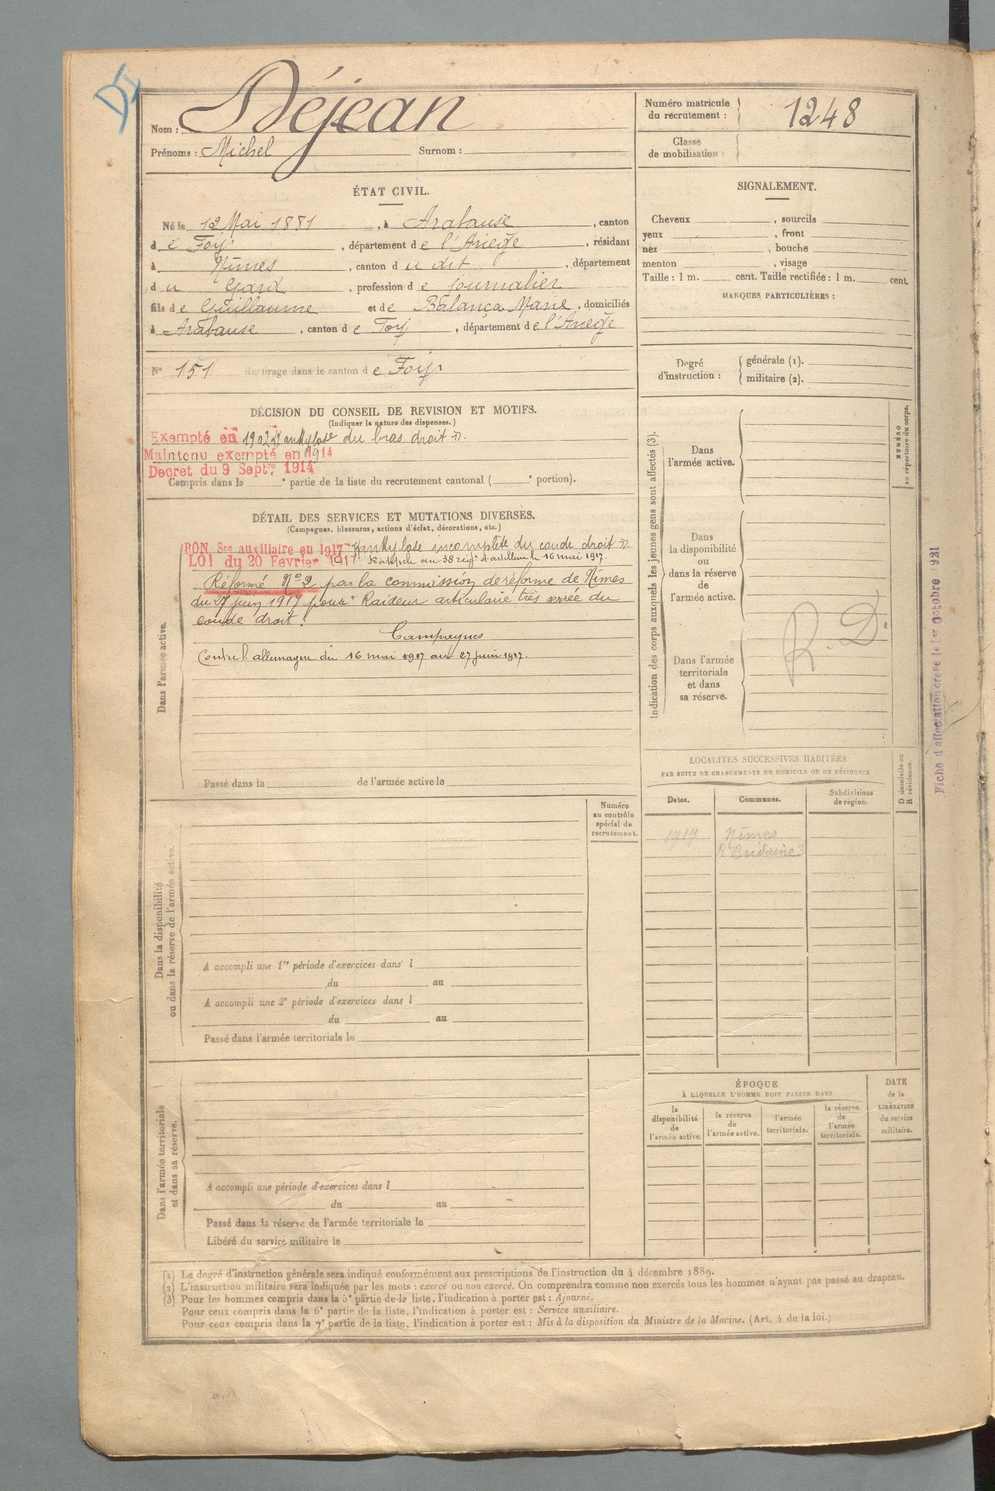 Nom : Déjean
Prénoms : Michel Surnom :
Numéro matricule du recrutement : 1248
Classe de mobilisation :
ÉTAT CIVIL.
Né le 12 Mai 1881, à Arabause, canton
de Foix, département de l'Ariège, résidant
à Nîmes, canton du dit, département
du Gard, profession de journalier
fils de Guillaume et de Balança Marie, domiciliés
à Arabause, canton de Foix, département de l'Ariège
N° 151 de tirage dans le canton de Foix
SIGNALEMENT.
Cheveux , sourcils
yeux , front
nez , bouche
menton , visage
Taille : 1 m. cent. Taille rectifiée : 1 m. cent.
MARQUES PARTICULIÈRES :
Degré d'instruction : générale (1).
militaire (2).
DÉCISION DU CONSEIL DE REVISION ET MOTIFS.
(Indiquer la nature des dispenses.)
Exempté en 1902 ankylose du bras droit
Maintenu exempté en 1914
Decret du 9 Septre 1914
Compris dans la e partie de la liste du recrutement cantonal ( e portion).
DÉTAIL DES SERVICES ET MUTATIONS DIVERSES.
(Campagnes, blessures, actions d'éclat, décorations, etc.)
BON Sce auxiliaire en 1917 Ankylose incomplète du coude droit
LOI du 20 Fevrier 1917 au 38 régt d'artillerie le 16 mai 1917.
Réformé N° 2 par la commission de réforme de Nîmes
du 27 juin 1917 pour "Raideur articulaire très serrée du
coude droit.
Campagnes
Contre l'allemagne du 16 mai 1917 au 27 juin 1917.
Dans l'armée active.
Passé dans la de l'armée active le
Indication des corps auxquels les jeunes gens sont affectés (3).
NUMÉRO au répertoire du corps.
Dans l'armée active.
Dans la disponibilité ou dans la réserve de l'armée active.
Dans l'armée territoriale et dans sa réserve.
R. D.
Fiche d'affectation créée le 1er Octobre 1921
LOCALITÉS SUCCESSIVES HABITÉES
PAR SUITE DE CHANGEMENTS DE DOMICILE OU DE RÉSIDENCE
Dates. Communes. Subdivisions de région. D domicile ou R résidence.
1917 Nîmes
R Bridaine 3
Numéro au contrôle spécial de recrutement.
Dans la disponibilité ou dans la réserve de l'armée active.
A accompli une 1re période d'exercices dans l
du au
A accompli une 2e période d'exercices dans l
du au
Passé dans l'armée territoriale le
Dans l'armée territoriale et dans sa réserve.
A accompli une période d'exercices dans l
du au
Passé dans la réserve de l'armée territoriale le
Libéré du service militaire le
ÉPOQUE
À LAQUELLE L'HOMME DOIT PASSER DANS
la disponibilité de l'armée active.
la réserve de l'armée active.
l'armée territoriale.
la réserve de l'armée territoriale.
DATE de la LIBÉRATION du service militaire.
(1) Le degré d'instruction générale sera indiqué conformément aux prescriptions de l'instruction du 4 décembre 1889.
(2) L'instruction militaire sera indiquée par les mots : exercé ou non exercé. On comprendra comme non exercés tous les hommes n'ayant pas passé au drapeau.
(3) Pour les hommes compris dans la 5e partie de la liste, l'indication à porter est : Ajourné.
Pour ceux compris dans la 6e partie de la liste, l'indication à porter est : Service auxiliaire.
Pour ceux compris dans la 7e partie de la liste, l'indication à porter est : Mis à la disposition du Ministre de la Marine. (Art. 4 de la loi.)